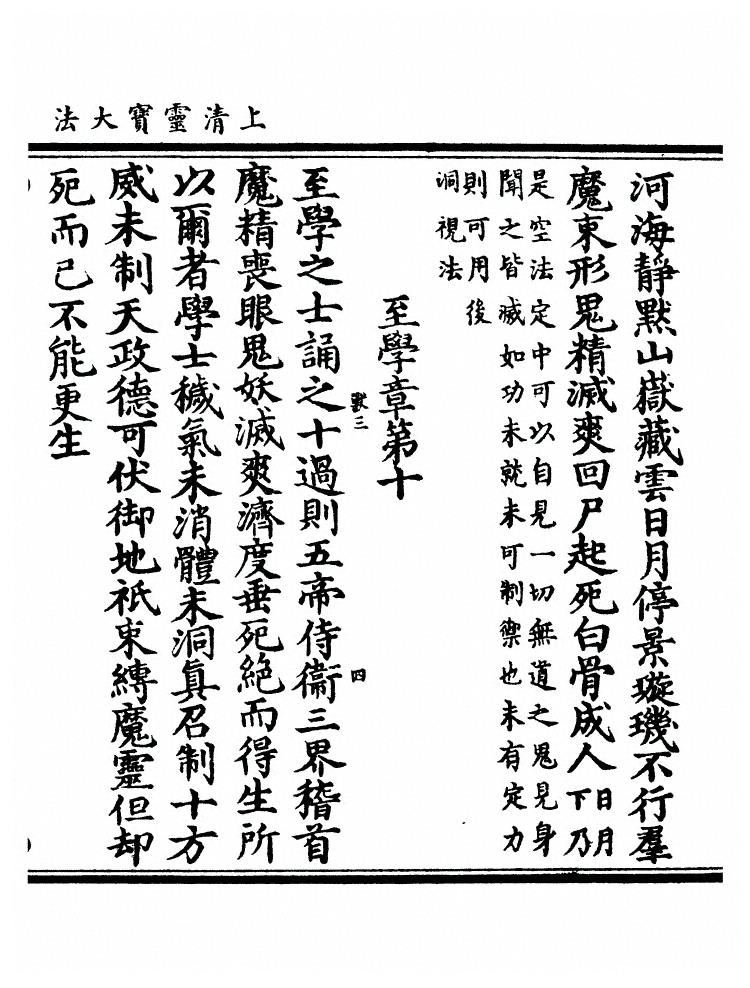 上清靈寶大法
河海靜默山嶽藏雲日月停景璇璣不行羣
魔束形鬼精滅爽回尸起死白骨成人
日月
下乃
是空法定中可以自見一切無道之鬼見身
聞之皆滅如功未就未可制禦也未有定力
則可用後
洞視法
至學章第十
獸三 四
至學之士誦之十過則五帝侍衛三界稽首
魔精喪眼鬼妖滅爽濟度垂死絕而得生所
以爾者學士穢氣未消體未洞眞召制十方
威未制天政德可伏御地祇束縛魔靈但却
死而已不能更生